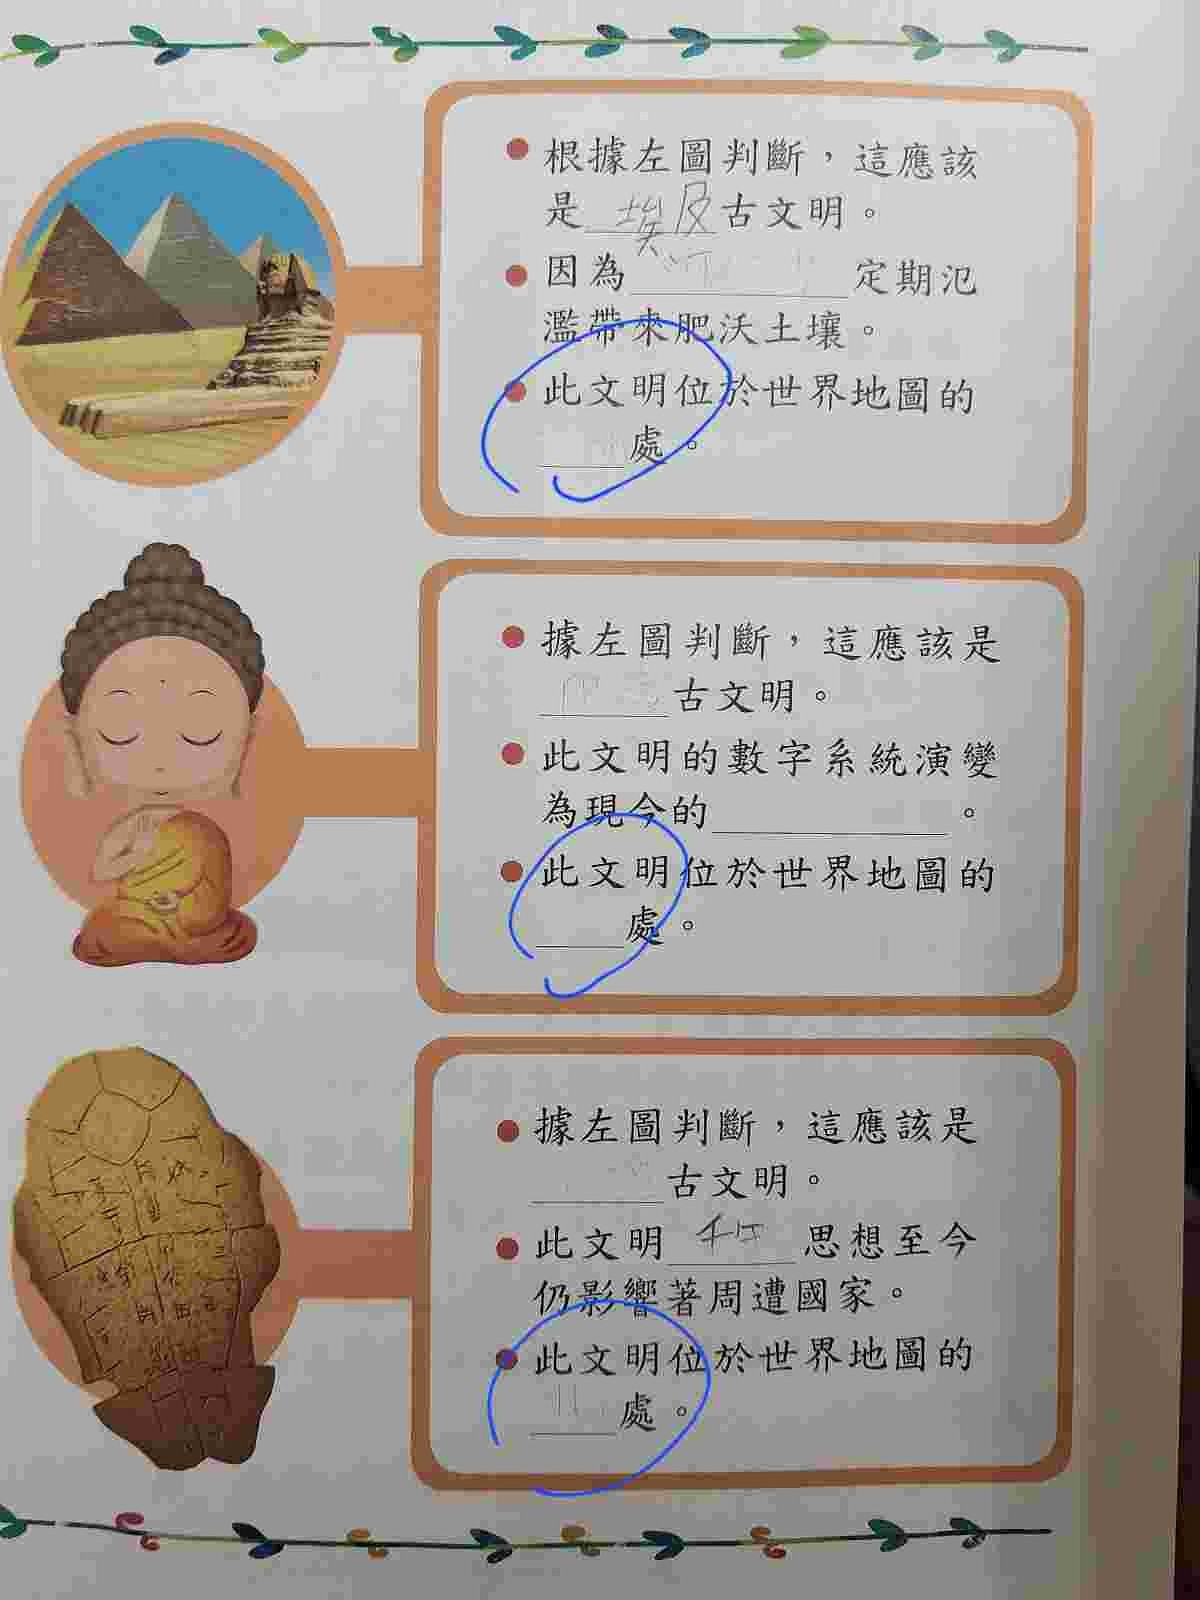 根據左圖判斷，這應該
是埃及古文明。
因為＿＿＿＿＿定期氾
濫帶來肥沃土壤。
此文明位於世界地圖的
＿＿處。
據左圖判斷，這應該是
＿＿＿古文明。
此文明的數字系統演變
為現今的＿＿＿＿＿。
此文明位於世界地圖的
＿＿處。
據左圖判斷，這應該是
＿＿＿古文明。
此文明＿＿＿思想至今
仍影響著周遭國家。
此文明位於世界地圖的
＿＿處。